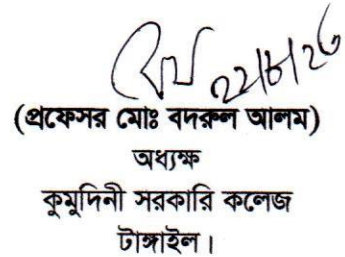 (প্রফেসর মোঃ বদরুল আলম)
অধ্যক্ষ
কুমুদিনী সরকারি কলেজ
টাঙ্গাইল।